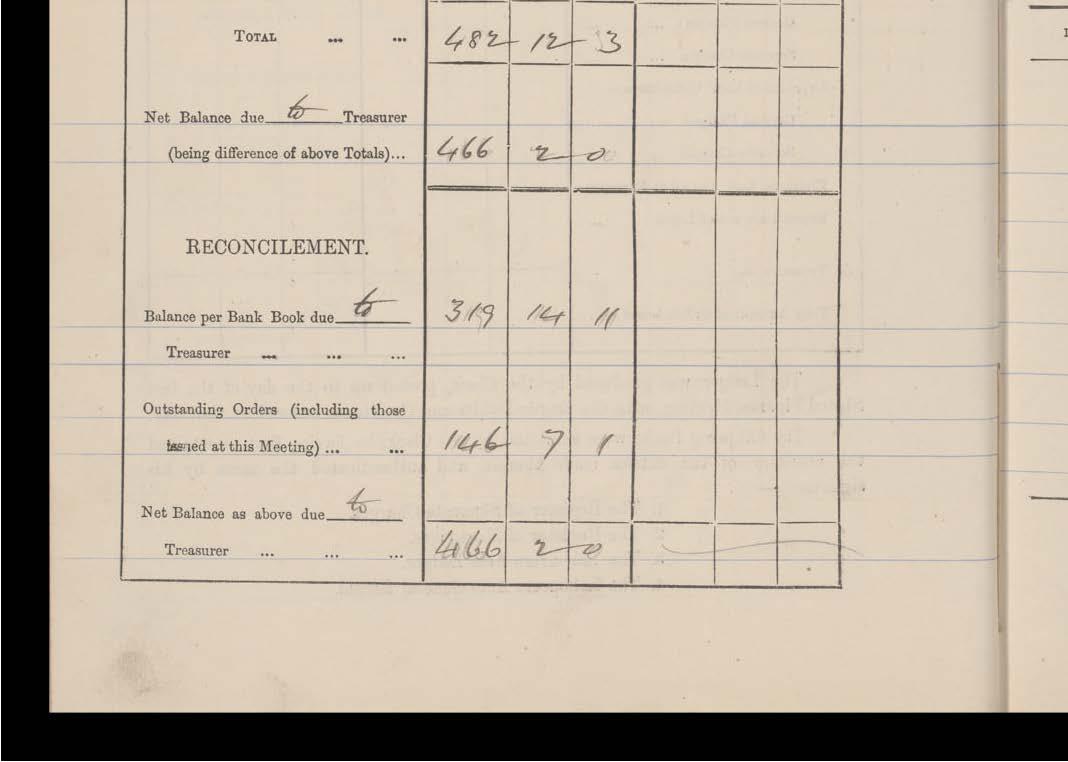 TOTAL ... ... 482 12 3
Net Balance due to Treasurer
(being difference of above Totals)... 466 2 0
RECONCILEMENT.
Balance per Bank Book due to 319 14 11
Treasurer ... ... ...
Outstanding Orders (including those
issued at this Meeting) ... ... 146 7 1
Net Balance as above due to
Treasurer ... ... ... 466 2 0